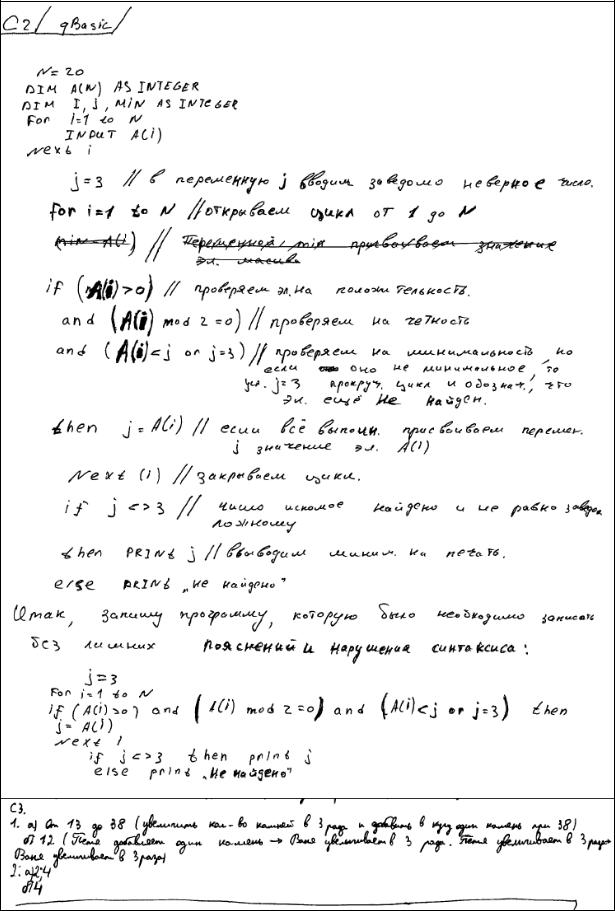 C2/ qBasic/
N=20
DIM A(N) AS INTEGER
DIM I, j, MIN AS INTEGER
For i=1 to N
INPUT A(i)
Next i
j=3 // в переменную j вводим заведомо неверное число.
for i=1 to N // открываем цикл от 1 до N
(min=A(i)) // Переменной min присваиваем значение
эл. масива
if (A(i)>0) // проверяем эл. на положительность.
and (A(i) mod 2=0) // проверяем на четность
and (A(i)<j or j=3) // проверяем на минимальность, но
если оно не минимальное, то
j=3 прокруч. цикл и обознач., что
эл. ещё не найден.
then j=A(i) // если всё выполн. присваиваем перемен.
j значение эл. A(i)
Next (i) // закрываем цикл.
if j<>3 // число искомое найдено и не равно заведом
ложному
then PRINt j // выводим миним. на печать.
else PRINt „не найдено"
Итак, запишу программу, которую было необходимо записать
без лишних пояснений и нарушения синтаксиса:
j=3
For i=1 to N
if (A(i)>0) and (A(i) mod 2=0) and (A(i)<j or j=3) then
j=A(i)
Next i
if j<>3 then print j
else print „Не найдено"
C3.
1. а) От 13 до 38 (увеличить кол-во камней в 3 раза и добавить в кучу один камень при 38)
б) 12 (Петя добавляет один камень → Ваня увеличивает в 3 раза. Петя увеличивает в 3 раза→
Ваня увеличивает в 3 раза)
2. а) 2;4
б) 4